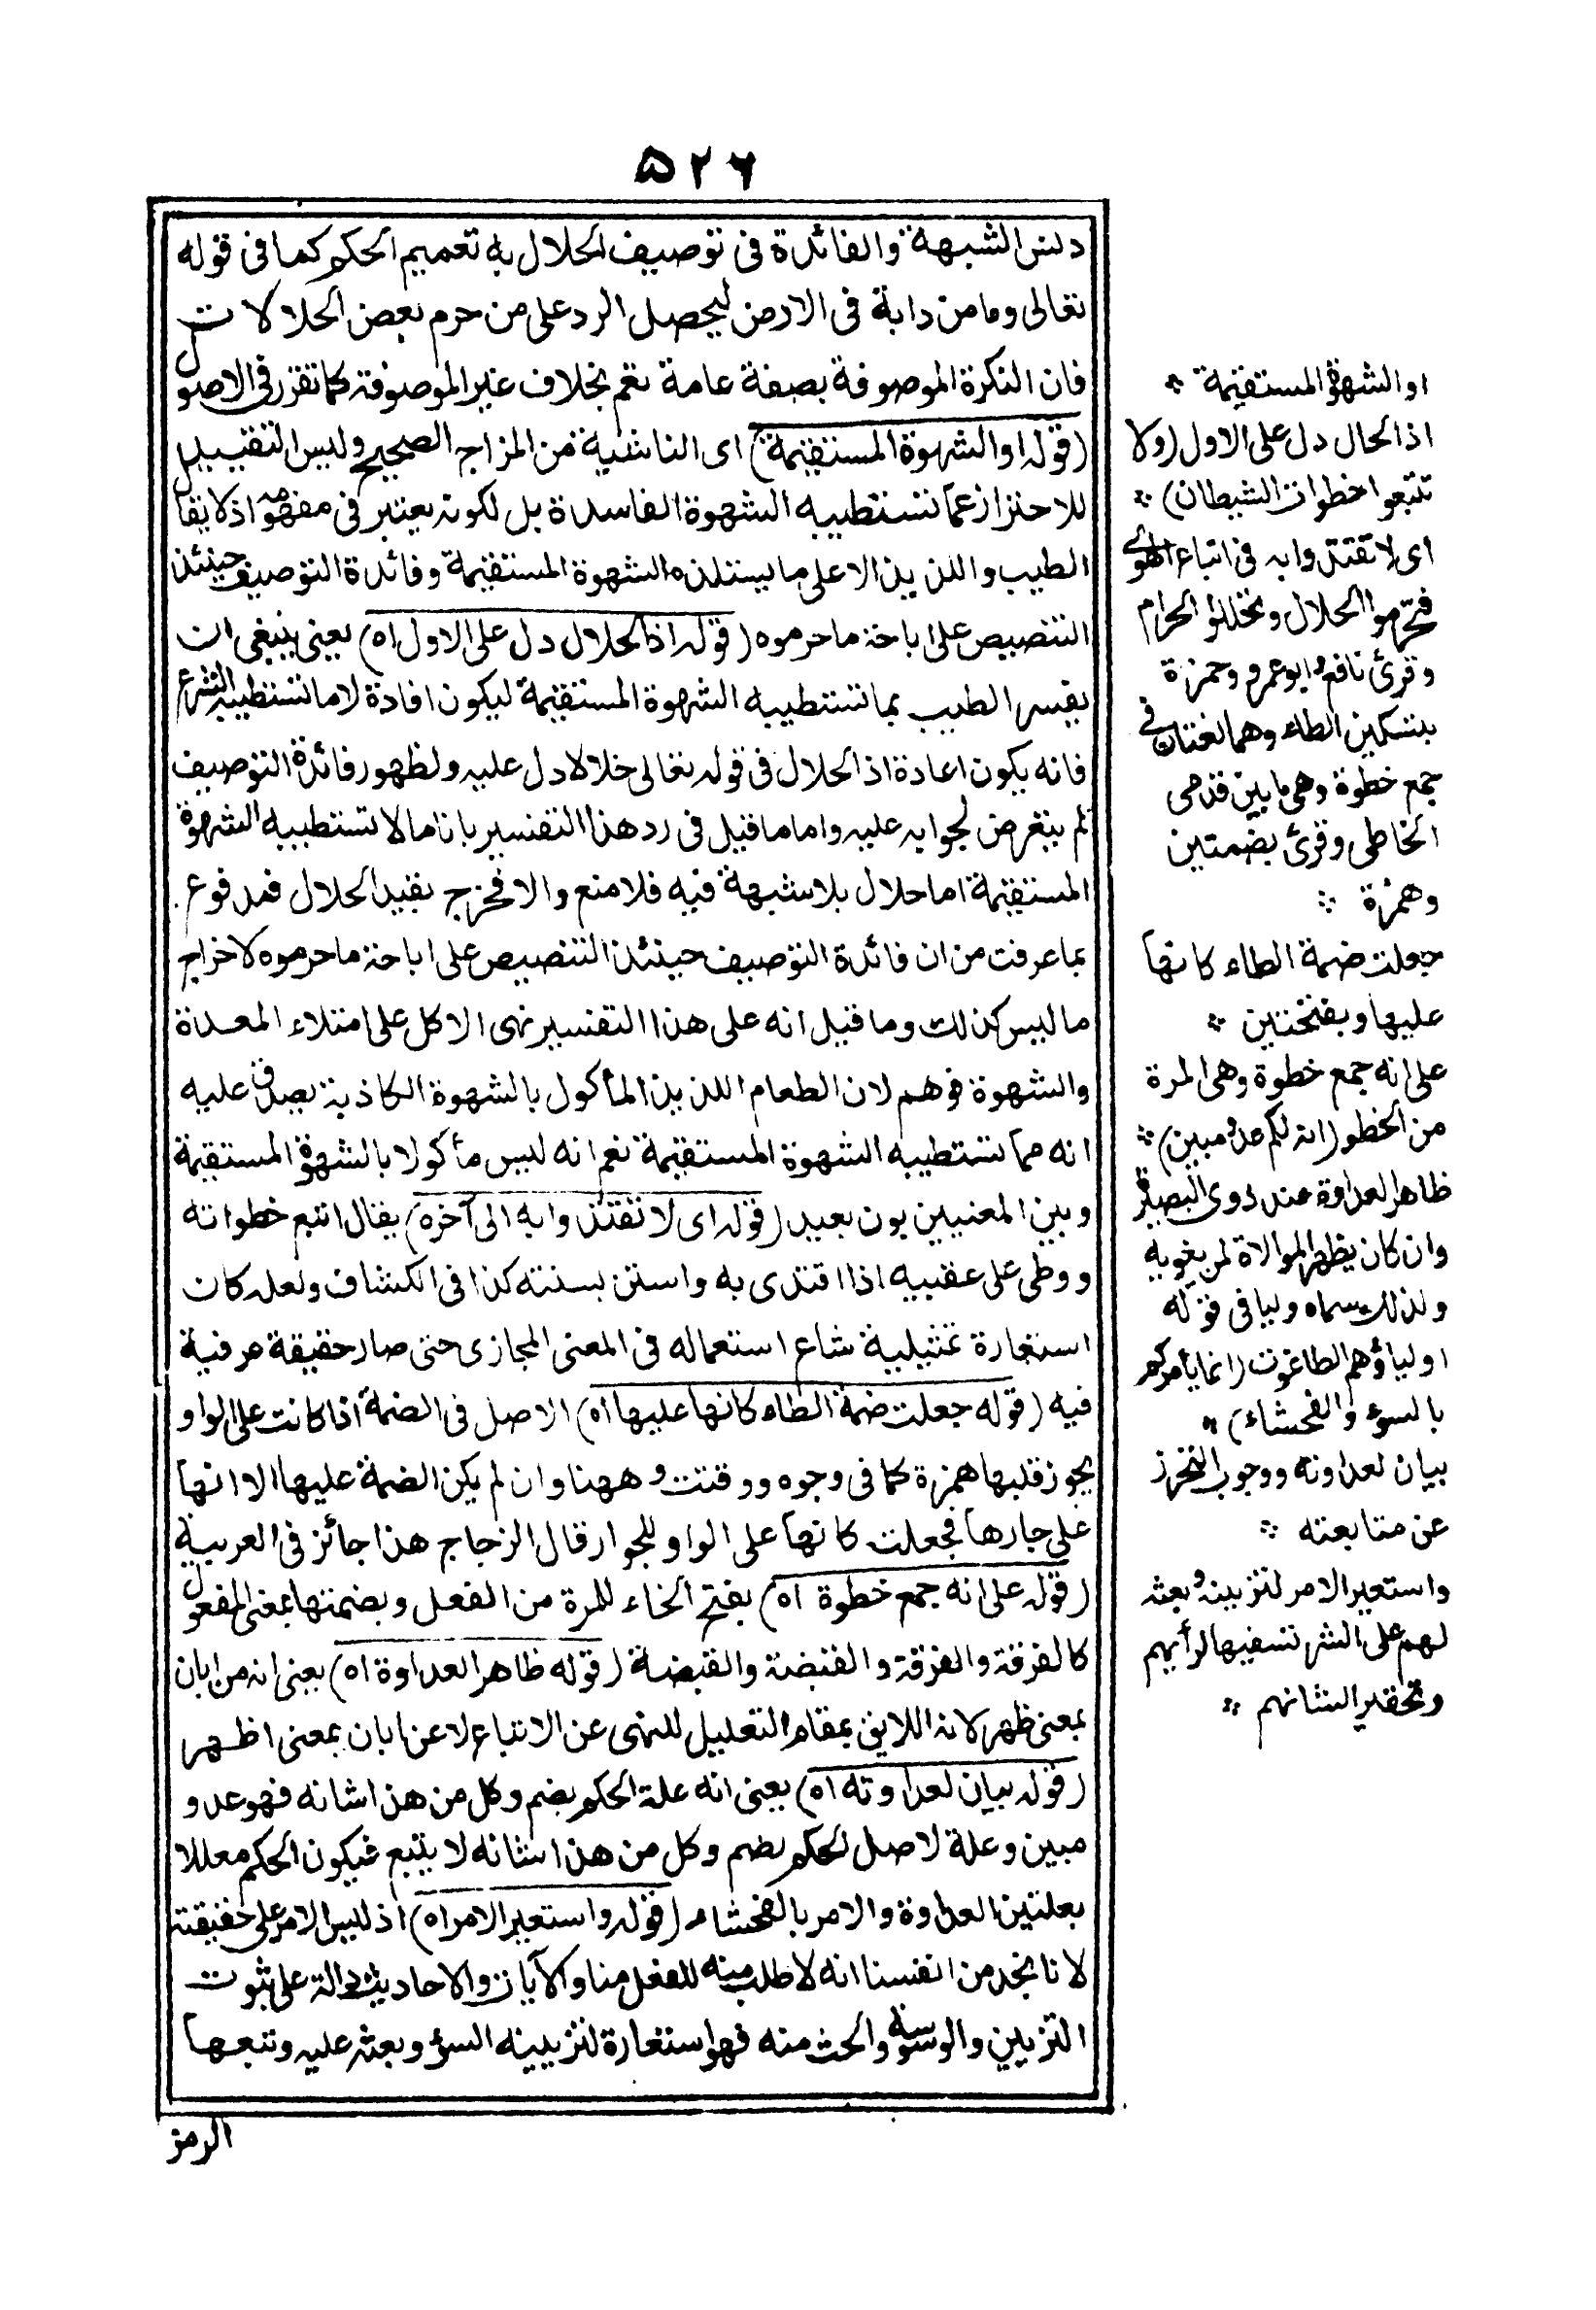 ٥٢٦
دنس الشبهة والفائدة فى توصيف الحلال به تعميم الحكم كما فى قوله
تعالى وما من دابة فى الارض ليحصل الرد على من حرم بعض الحلالات
فان النكرة الموصوفة بصفة عامة تعم بخلاف غير الموصوفة كما تقرر فى الاصول
(قوله او الشهوة المستقيمة) اى الناشية من المزاج الصحيح وليس التقييد
للاحتراز عما تستطيبه الشهوة الفاسدة بل لكونه يعتبر فى مفهومه اذ لا يقال
الطيب واللذيذ الا على ما يستلذه الشهوة المستقيمة وفائدة التوصيف حينئذ
التنصيص على اباحة ما حرموه (قوله اذ الحلال دل على الاول اه) يعنى ينبغى ان
يفسر الطيب بما تستطيبه الشهوة المستقيمة ليكون افادة لا ما تستطيبه الشرع
فانه يكون اعادة اذ الحلال فى قوله تعالى حلالا دل عليه ولظهور فائدة التوصيف
لم يتعرض لجوابه عليه واما ما قيل فى رد هذا التفسير بانا ما لا تستطيبه الشهوة
المستقيمة اما حلال بلا شبهة فيه فلا منع والا فخرج بقيد الحلال فمدفوع
بما عرفت من ان فائدة التوصيف حينئذ التنصيص على اباحة ما حرموه لا خراج
ما ليس كذلك وما قيل انه على هذا التفسير نهى الاكل على امتلاء المعدة
والشهوة فوهم لان الطعام اللذيذ المأكول بالشهوة الكاذبة يصدق عليه
انه مما تستطيبه الشهوة المستقيمة نعم انه ليس مأكولا بالشهوة المستقيمة
وبين المعنيين بون بعيد (قوله اى لا تقتدوا به الى آخره) يقال اتبع خطواته
ووطى على عقبيه اذا اقتدى به واستن بسنته كذا فى الكشاف ولعله كان
استعارة تمثيلية شاع استعماله فى المعنى المجازى حتى صار حقيقة عرفية
فيه (قوله جعلت ضمة الطاء كانها عليها اه) الاصل فى الضمة اذا كانت على الواو
يجوز قلبها همزة كما فى وجوه ووقتت وههنا وان لم يكن الضمة عليها الا انها
على جارها فجعلت كانها على الواو للجوار قال الزجاج هذا جائز فى العربية
(قوله على انه جمع خطوة اه) بفتح الخاء للمرة من الفعل وبضمتها بمعنى المفعول
كالغرفة والغرفة والقبضة والقبضة (قوله ظاهر العداوة اه) يعنى انه من ابان
بمعنى ظهر لانه اللايق بمقام التعليل للنهى عن الاتباع لا عن ابان بمعنى اظهر
(قوله بيان لعداوته اه) يعنى انه علة الحكم بضم وكل من هذا شانه فهو عدو
مبين وعلة لاصل الحكم بضم وكل من هذا شانه لا يتبع فيكون الحكم معللا
بعلتين العداوة والامر بالفحشاء (قوله واستعير الامر اه) اذ ليس الامر على حقيقته
لانا نجد من انفسنا انه لا طلب منه للفعل منا والآيات والاحاديث دالة على ثبوت
التزيين والوسوسة والحث منه فهو استعارة لتزيينه السوء وبعثه عليه وتتبعها
الرمز
او الشهوة المستقيمة ؞
اذ الحال دل على الاول (ولا
تتبعوا خطوات الشيطان) ؞
اى لا تقتدوا به فى اتباع الهوى
فتحرموا الحلال وتحللوا الحرام
وقرئ نافع وابو عمرو وحمزة
بتسكين الطاء وهما لغتان فى
جمع خطوة وهى ما بين قدمى
الخاطى وقرئ بضمتين
وهمزة ؞
جعلت ضمة الطاء كانها
عليها وبفتحتين ؞
على انه جمع خطوة وهى المرة
من الخطو (انه لكم عدو مبين) ؞
ظاهر العداوة عند ذوى البصيرة
وان كان يظهر الموالاة لمن يغويه
ولذلك سماه وليا فى قوله
اولياؤهم الطاغوت (انما يأمركم
بالسوء والفحشاء) ؞
بيان لعداوته ووجوب التحرز
عن متابعته ؞
واستعير الامر لتزيينه وبعثه
لهم على الشر تسفيها لرأيهم
وتحقيرا لشانهم ؞